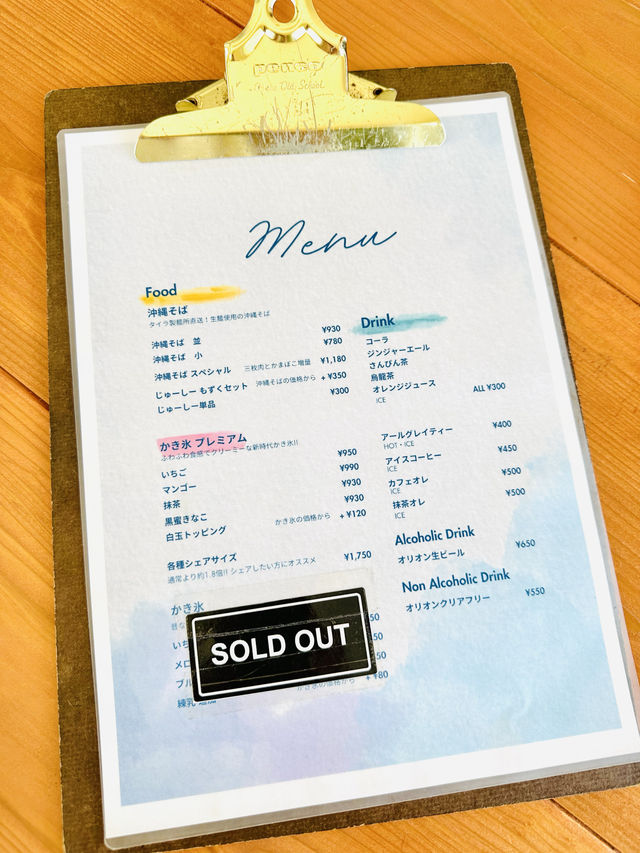 penco
Old School
Menu
Food
沖縄そば
タイラ製麺所直送！生麺使用の沖縄そば
沖縄そば　並 ¥930
沖縄そば　小 ¥780
沖縄そば スペシャル 三枚肉とかまぼこ増量 ¥1,180
じゅーしー もずくセット 沖縄そばの価格から + ¥350
じゅーしー単品 ¥300
かき氷 プレミアム
ふわふわ食感でクリーミーな新時代かき氷!!
いちご ¥950
マンゴー ¥990
抹茶 ¥930
黒蜜きなこ ¥930
白玉トッピング かき氷の価格から + ¥120
各種シェアサイズ ¥1,750
通常より約1.8倍!! シェアしたい方にオススメ
かき氷
SOLD OUT
練乳 追加 かき氷の価格から + ¥80
Drink
コーラ
ジンジャーエール
さんぴん茶
烏龍茶
オレンジジュース ALL ¥300
ICE
アールグレイティー ¥400
HOT・ICE
アイスコーヒー ¥450
ICE
カフェオレ ¥500
ICE
抹茶オレ ¥500
ICE
Alcoholic Drink
オリオン生ビール ¥650
Non Alcoholic Drink
オリオンクリアフリー ¥550